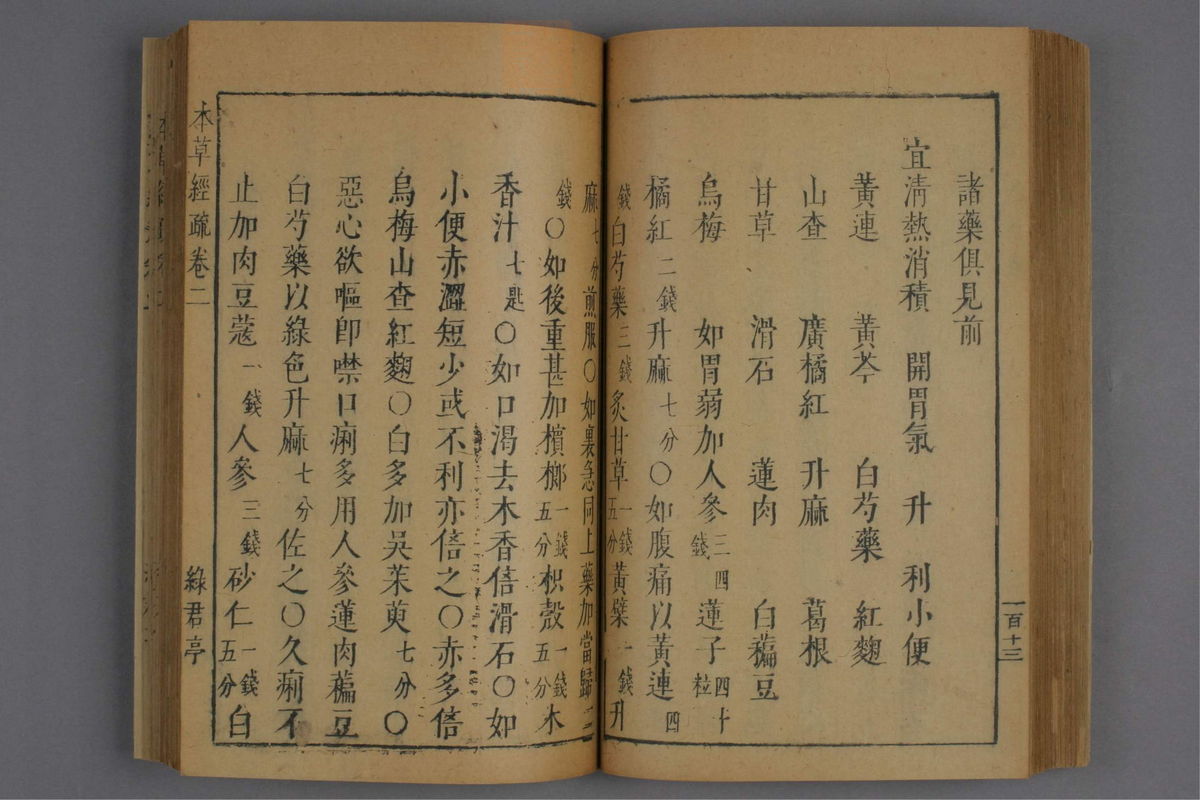 諸藥俱見前
宜淸熱消積　開胃氣　升　利小便
黃連　黃芩　白芍藥　紅麯
山查　廣橘紅　升麻　葛根
甘草　滑石　蓮肉　白藊豆
烏梅　如胃弱加人參三四錢蓮子四十粒
橘紅二錢升麻七分〇如腹痛以黃連四
錢白芍藥三錢炙甘草一錢五分黃蘗一錢升
麻七分煎服〇如裏急同上藥加當歸二
錢〇如後重甚加檳榔一錢五分枳殼一錢五分木
香汁七匙〇如口渴去木香倍滑石〇如
小便赤澀短少或不利亦倍之〇赤多倍
烏梅山查紅麯〇白多加吳茱萸七分〇
惡心欲嘔卽噤口痢多用人參蓮肉藊豆
白芍藥以綠色升麻七分佐之〇久痢不
止加肉豆蔻一錢人參三錢砂仁一錢五分白
一百十三
本草經疏卷二
綠君亭